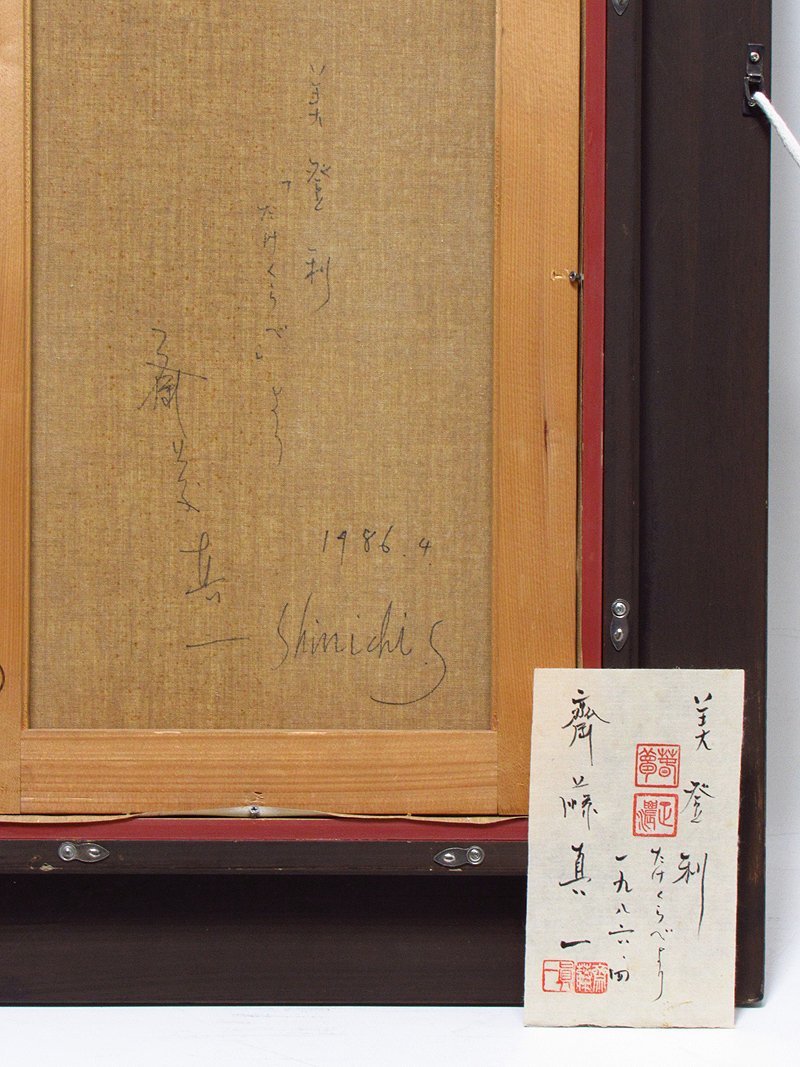 美登利
「たけくらべ」より
斎藤真一
1986.4
Shinichi.S
美登利
たけくらべより
一九八六・四
齋藤真一